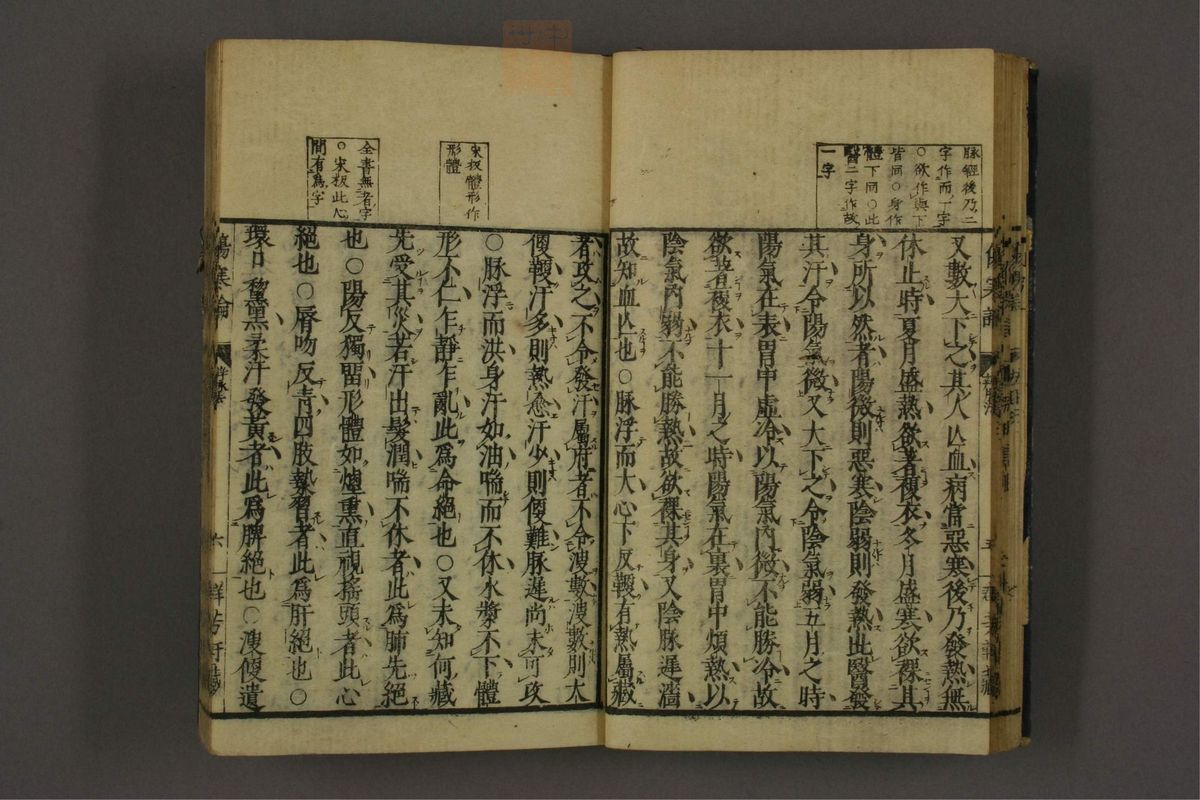 脉經後乃二
字作而一字
○欲作與下
皆同○身作
體下同○此
醫二字作故
一字
又數大下之其人亾血病當惡寒後乃發熱無
休止時夏月盛熱欲著複衣冬月盛寒欲裸其
身所以然者陽微則惡寒陰弱則發熱此醫發
其汗令陽氣微又大下之令陰氣弱五月之時
陽氣在表胃中虛冷以陽氣內微不能勝冷故
欲著複衣十一月之時陽氣在裏胃中煩熱以
陰氣內弱不能勝熱故欲裸其身又陰脉遲濇
故知血亾也○脉浮而大心下反鞕有熱屬藏
宋板體形作
形體
全書無者字
○宋板此心
間有爲字
者攻之不令發汗屬府者不令溲數溲數則大
便鞕汗多則熱愈汗少則便難脉遲尚未可攻
○脉浮而洪身汗如油喘而不休水漿不下體
形不仁乍靜乍亂此爲命絕也○又未知何藏
先受其災若汗出髮潤喘不休者此爲肺先絕
也○陽反獨留形體如煙熏直視搖頭者此心
絕也○脣吻反青四肢漐習者此爲肝絕也○
環口黧黑柔汗發黃者此爲脾絕也○溲便遺
傷寒論
六